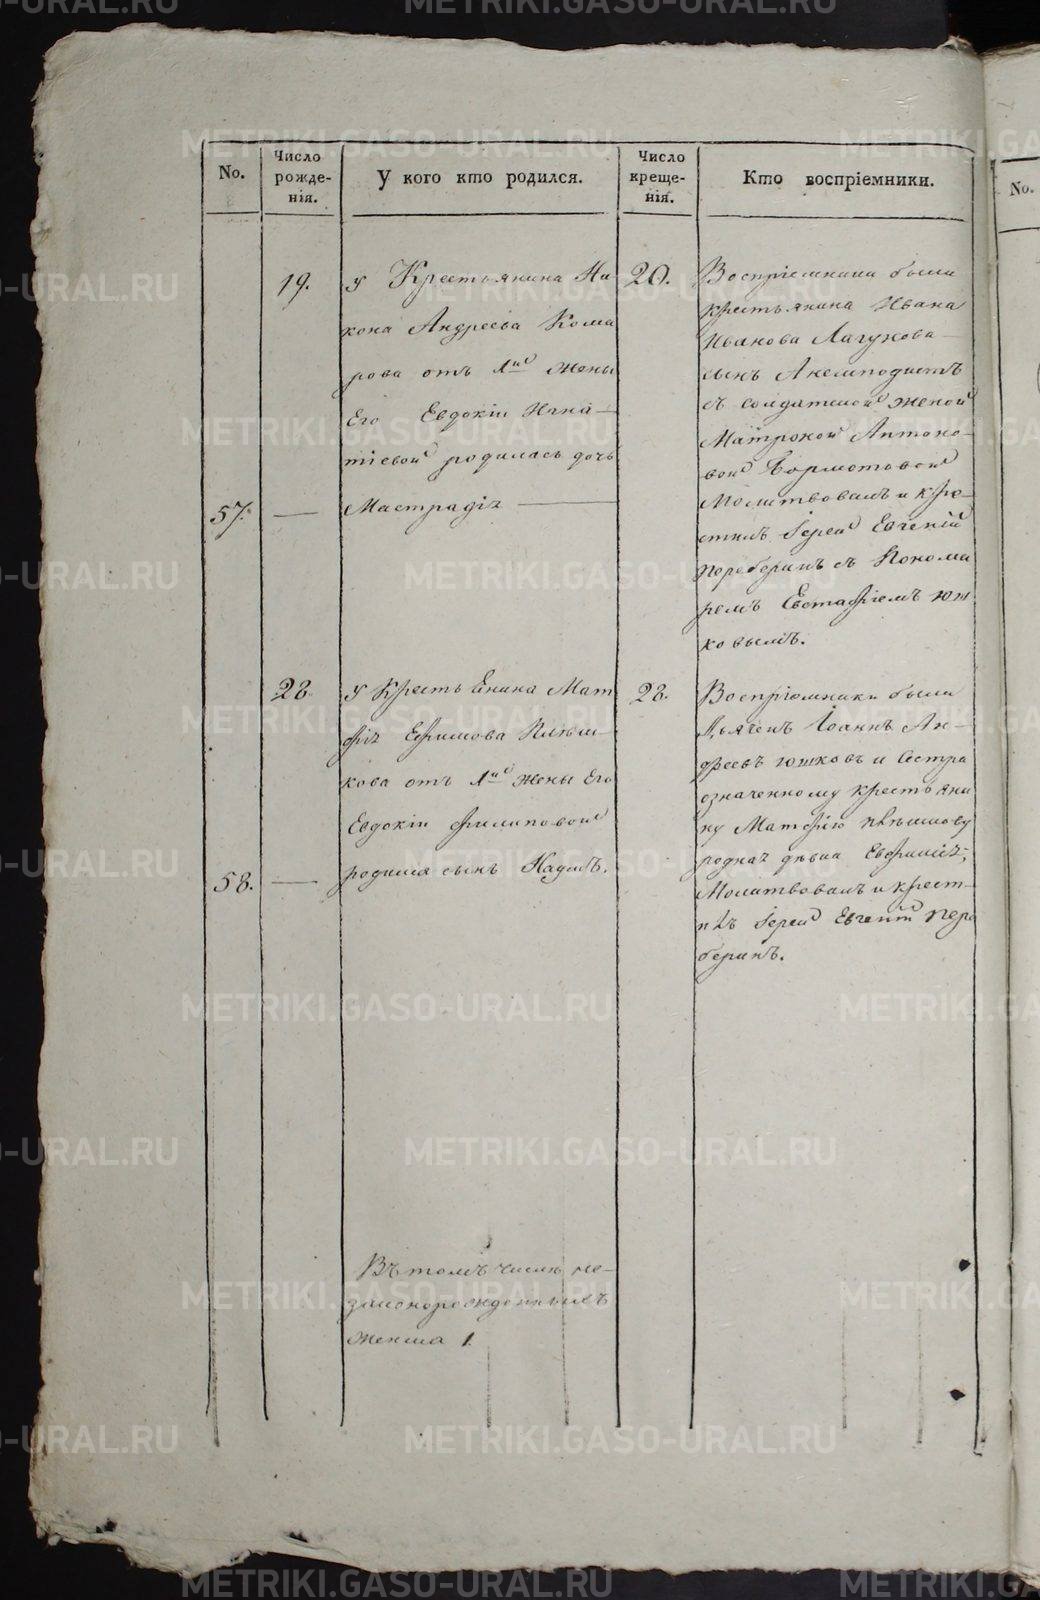 No.
Число рожде-нія.
У кого кто родился.
Число креще-нія.
Кто воспріемники.
No.
19.
у Крестьянина Ни
кона Андреева Кома
рова отъ 1й жены
Его Евдокіи Игна-
тіевой родилась дочь
57.
Мастрадіа
20.
Воспріемники были
крестьянина Ивана
Иванова Лагунова
сынъ Акелиподистъ
съ солдатской женой
Матроной Антоно-
вой
Молитвовалъ и кре-
стилъ Іерей Евгеній
Переберинъ съ Понома
ремъ Евстафіемъ Юш
ковымъ.
28.
у Крестьянина Мат
фія Ефимова Плѣш-
кова отъ 1й жены Его
Евдокіи Филиповой
58.
родился сынъ Наумъ.
28.
Воспріемники были
Дьячекъ Іоаннъ Ан-
дреевъ Юшковъ и Сестра
означенному крестьяни
ну Матфію Плѣшкову
родная дѣвка Евфимія,
Молитвовалъ и крест-
илъ Іерей Евгеній Пере
беринъ.
Въ томъ числѣ не-
законорожденныхъ
женска 1.
METRIKI.GASO-URAL.RU